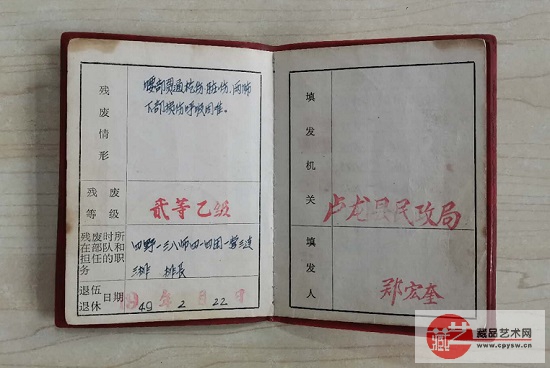 残废情形
腰部贯通枪伤脏伤,两肺
下部损伤呼吸困难。
残废等级
贰等乙级
残废时所在部队和担任的职务
四野一三八师四一四团一营三连
三排 排长
退伍
退休
日期
1949年2月22日
填发机关
卢龙县民政局
填发人
郑宏奎
藏艺
藏品艺术网
www.cpysw.cn